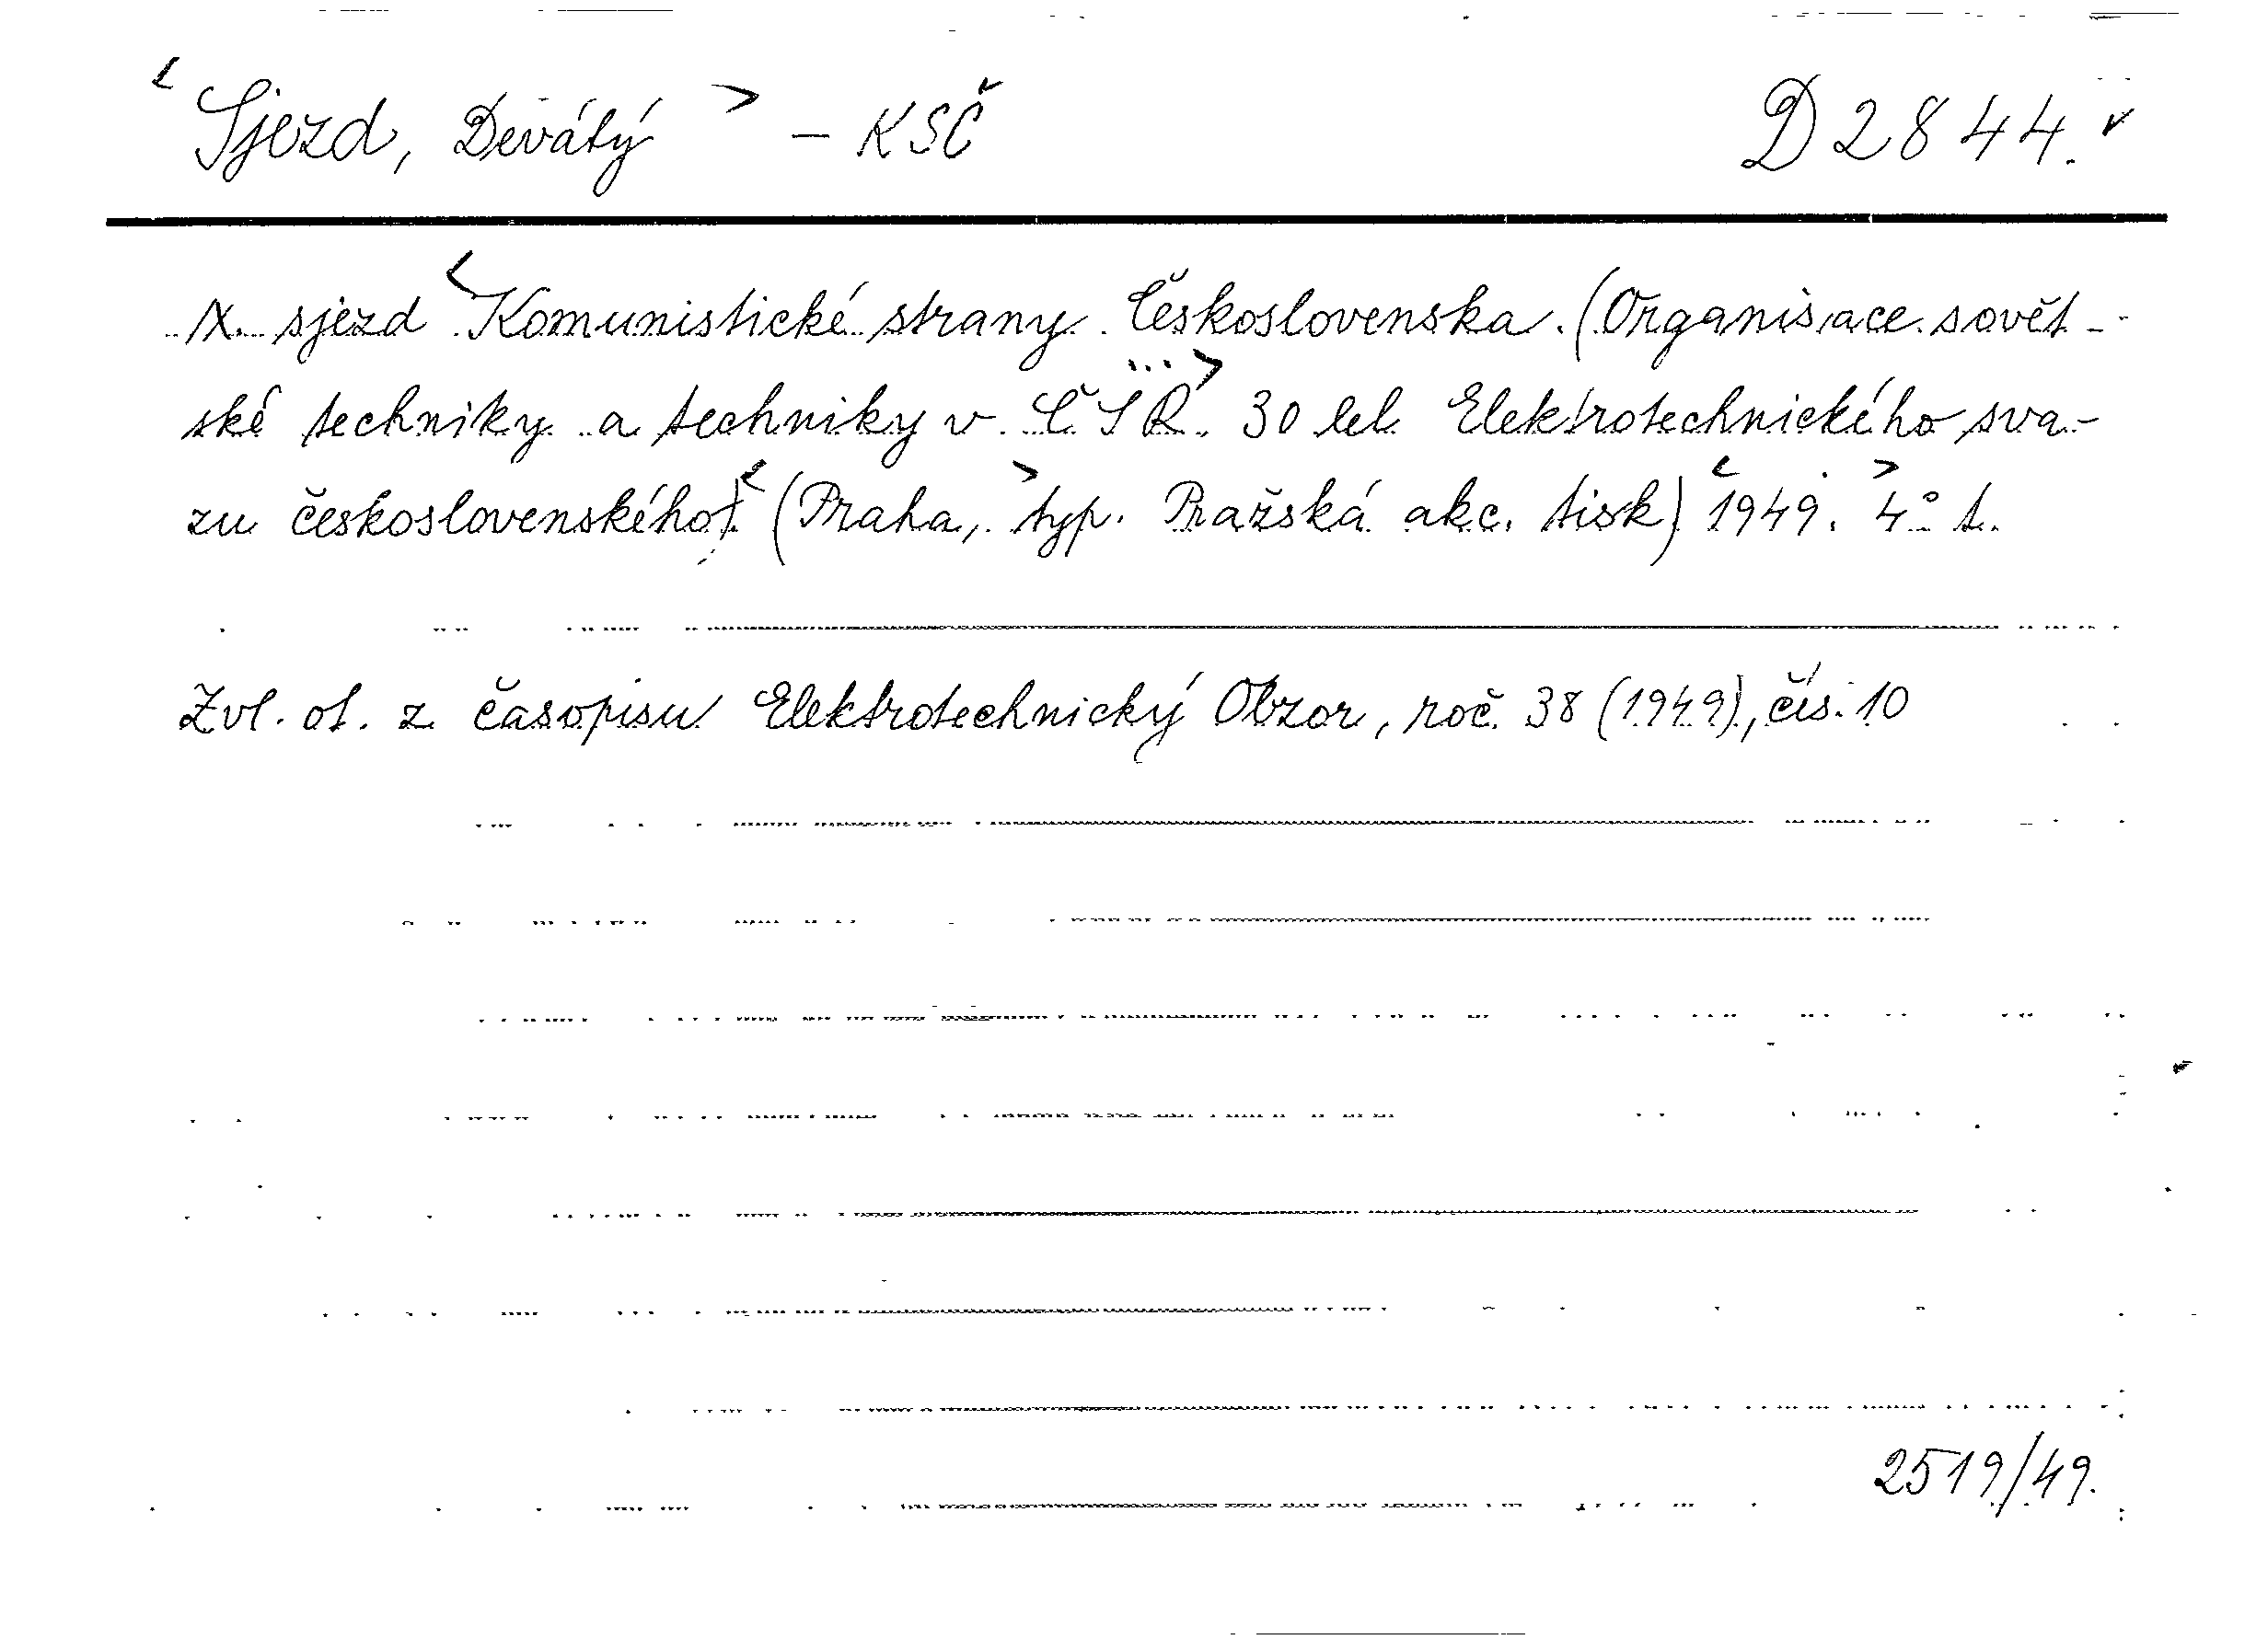 < Sjezd, Devátý > – KSČ D 2844.
IX. sjezd < Komunistické strany Československa. (Organisace sovět-
ské techniky a techniky v ČSR. ... > 30 let Elektrotechnického sva-
zu československého). < (Praha, > typ. Pražská akc. tisk) < 1949. > 4° t.
Zvl. ot. z časopisu Elektrotechnický Obzor, roč. 38 (1949), čís. 10
2519/49.